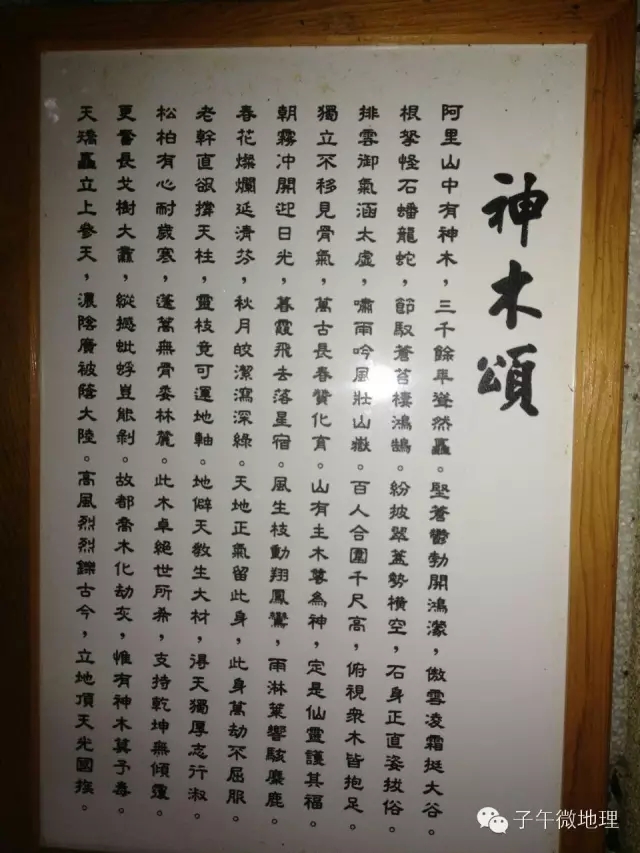 神木頌
阿里山中有神木，三千餘年聳然矗。堅蒼鬱勃開鴻濛，傲雪凌霜挺大谷。
根拏怪石蟠龍蛇，節馭蒼苔棲鴻鵠。紛披翠蓋勢橫空，石身正直姿拔俗。
排雲御氣涵太虛，嘯雨吟風壯山嶽。百人合圍千尺高，俯視眾木皆抱足。
獨立不移見骨氣，萬古長春贊化育。山有主木尊為神，定是仙靈護其福。
朝霧沖開迎日光，暮霞飛去落星宿。風生枝動翔鳳鸞，雨淋葉響駭麋鹿。
春花燦爛延清芬，秋月皎潔瀉深綠。天地正氣留此身，此身萬劫不屈服。
老幹直欲撐天柱，靈枝竟可運地軸。地僻天教生大材，得天獨厚志行淑。
松柏有心耐歲寒，蓬蒿無骨委林麓。此木卓絕世所希，支持乾坤無傾覆。
更奮長戈樹大纛，縱撼蚍蜉豈能剝。故都喬木化劫灰，惟有神木莫予毒。
天矯矗立上參天，濃陰廣被蔭大陸。高風烈烈鑠古今，立地頂天光國族。
子午微地理